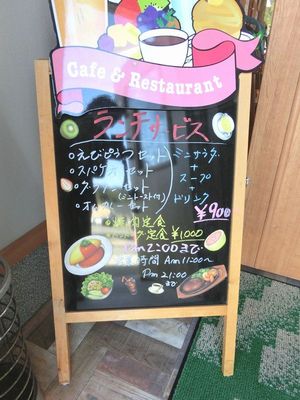 Cafe & Restaurant
ランチサービス
えびピラフセット
スパゲティセット
グラタンセット
(ミニトースト付)
オムカレーセット
ミニサラダ
+
スープ
+
ドリンク
¥900
焼肉定食
定食 ¥1000
Pm 2:00まで
営業時間 Am 11:00~
Pm 21:00
まで